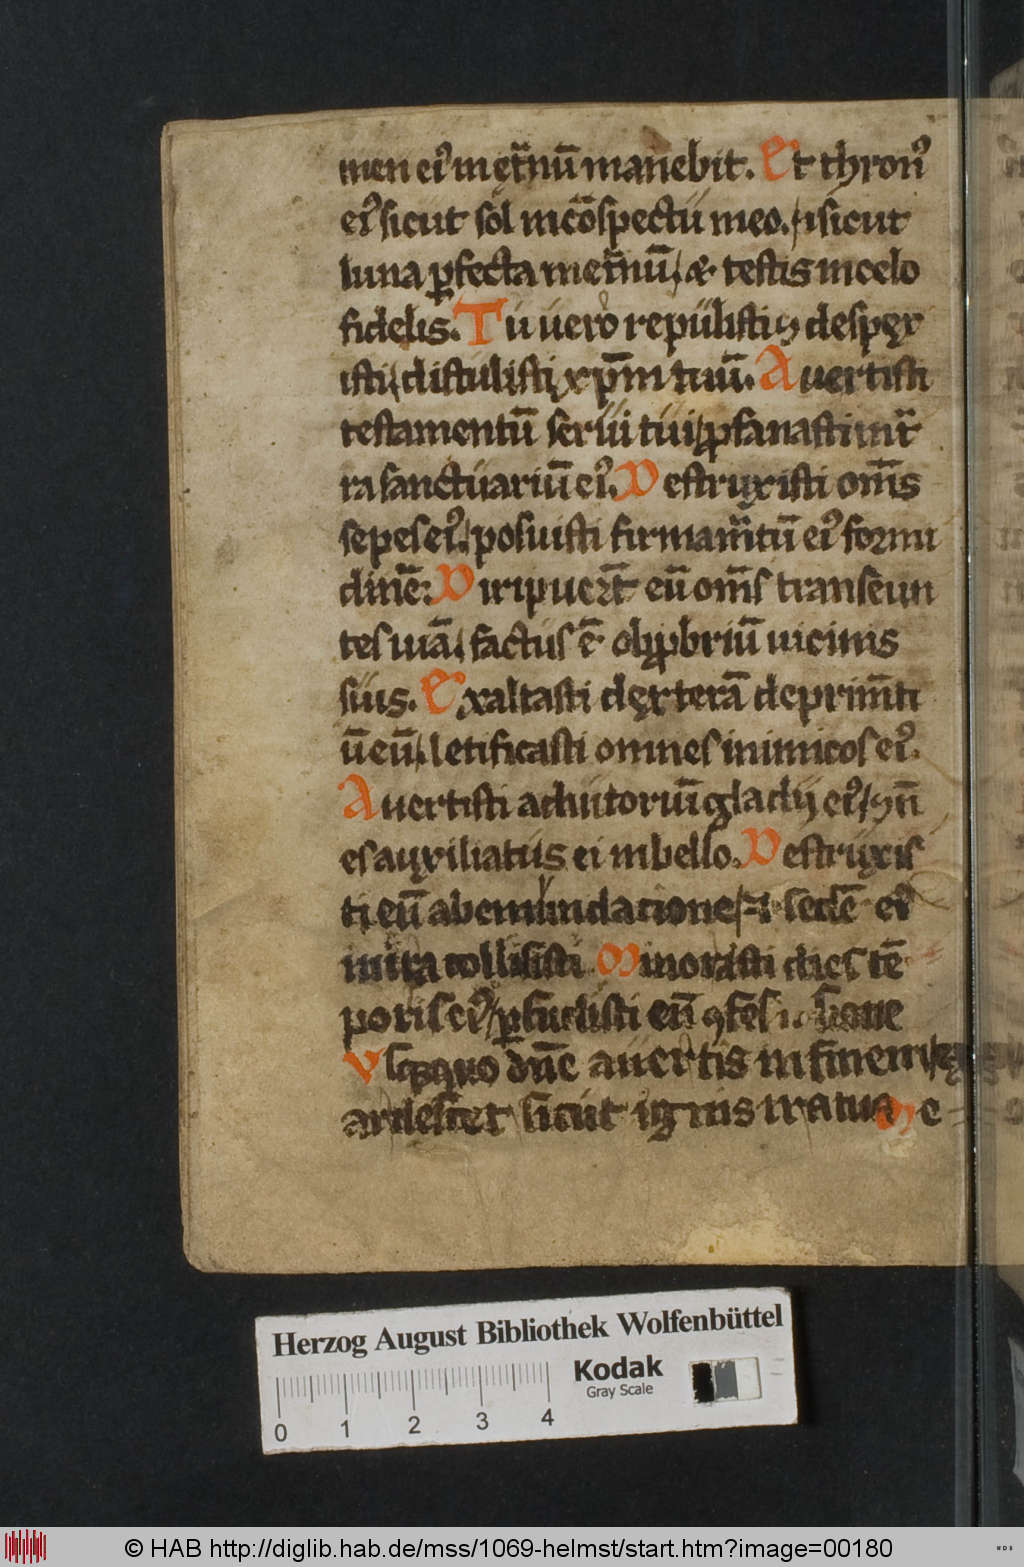 men eiꝰ in et̄nū manebit. Et thronꝰ
eiꝰ sicut sol in cōspectu meo. / ⁊ sicut
luna ꝑfecta in et̄nū / & testis in celo
fidelis. Tu uero repulisti ⁊ despex
isti / distulisti xp̄m tuū. Auertisti
testamentū serui tui / ꝓfanasti in t̄
ra sanctuariū eiꝰ. Destruxisti om̄s
sepes eiꝰ / posuisti firmam̄tū eiꝰ formi
dinē. Diripuer̄t eū om̄s transeun
tes uiā / factus ē obꝓbriū uicinis
suis. Exaltasti dexterā deprim̄ti
ū eū / letificasti omnes inimicos eiꝰ.
Auertisti adiutoriū gladij eiꝰ / ⁊ n̄
es auxiliatus ei in bello. Destruxis
ti eū ab emundatione / ⁊ sedē eiꝰ
in t̄ra collisisti Minorasti dies tē
poris eiꝰ / ꝑfudisti eū ꝯfusione
Vsqꝫquo dn̄e auertis in finem / ex
ardescet sicut ignis ira tua Me
Herzog August Bibliothek Wolfenbüttel
Kodak
Gray Scale
0 1 2 3 4
© HAB http://diglib.hab.de/mss/1069-helmst/start.htm?image=00180